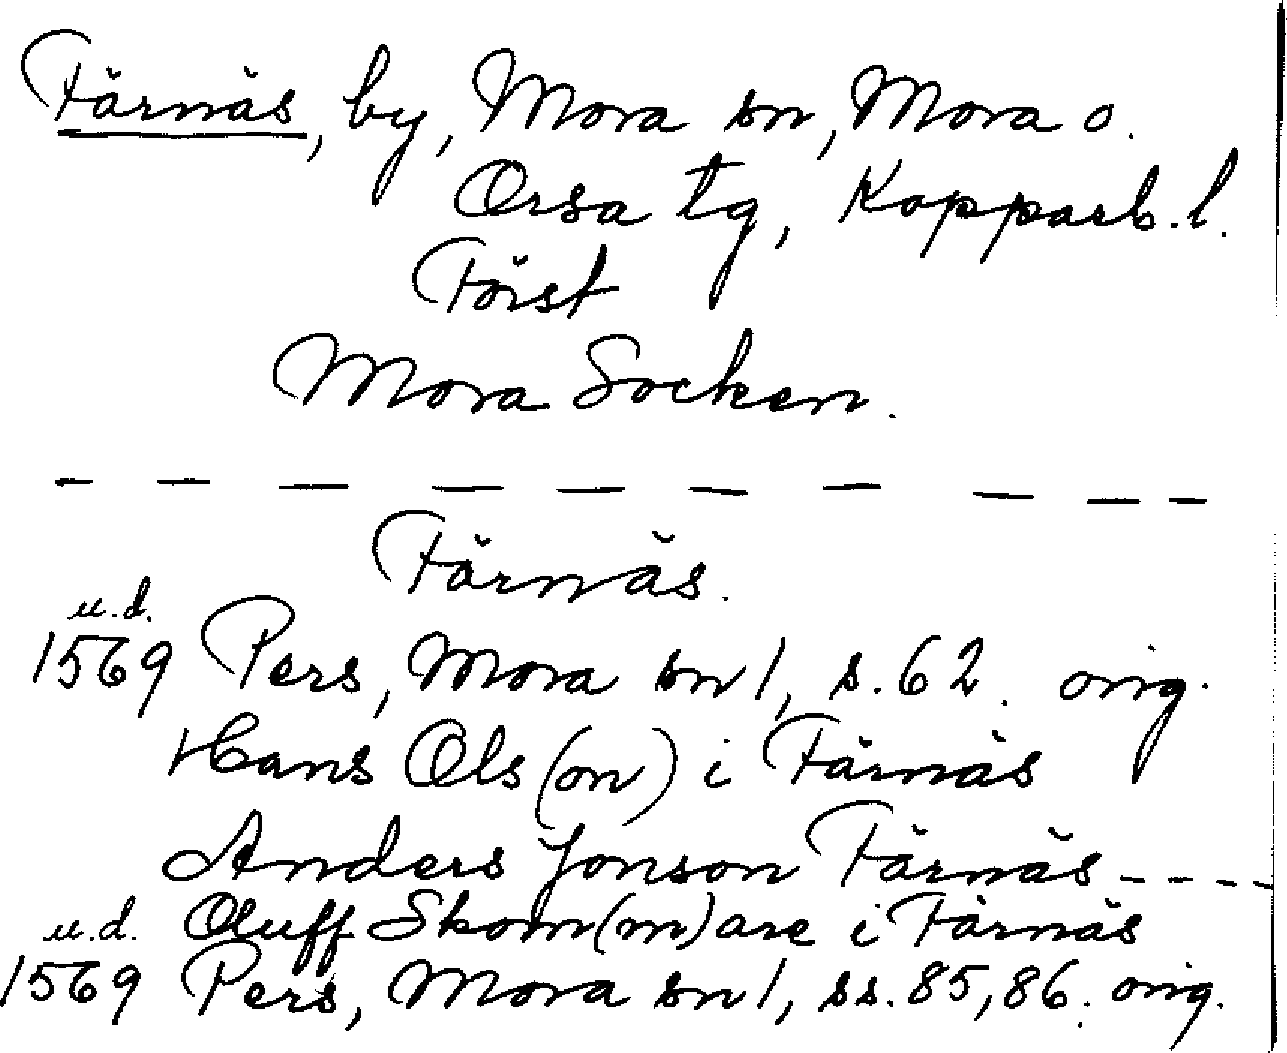 Färnäs, by, Mora sn, Mora o.
Orsa tg, Kopparb. l.
Först
Mora Socken.
— — — — — — — — — —
Färnäs.
u.d.
1569 Pers, Mora sn 1, s. 62. orig.
Hans Ols(on) i Färnäs
Anders Jonson Färnäs ----
u.d. Oluff Skom(m)are i Färnäs
1569 Pers, Mora sn 1, ss. 85, 86. orig.